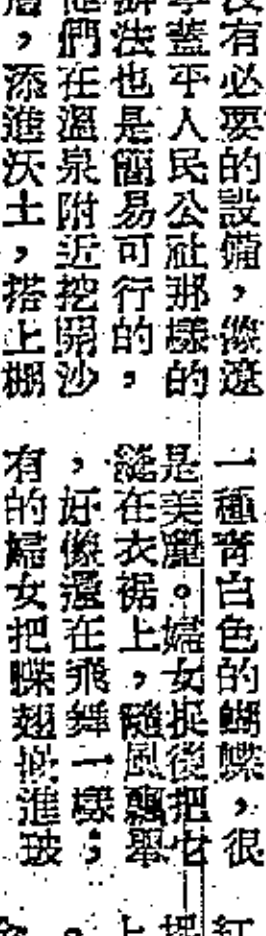 有必要的設備，像遼
蓋平人民公社那樣的
法也是簡易可行的，
們在溫泉附近挖開沙
，添進沃土，搭上棚
一種青白色的蝴蝶，很
是美麗。婦女捉後把它
在衣裾上，隨風飄舉
，好像還在飛舞一樣；
有的婦女把蝶翅 進玻
紅